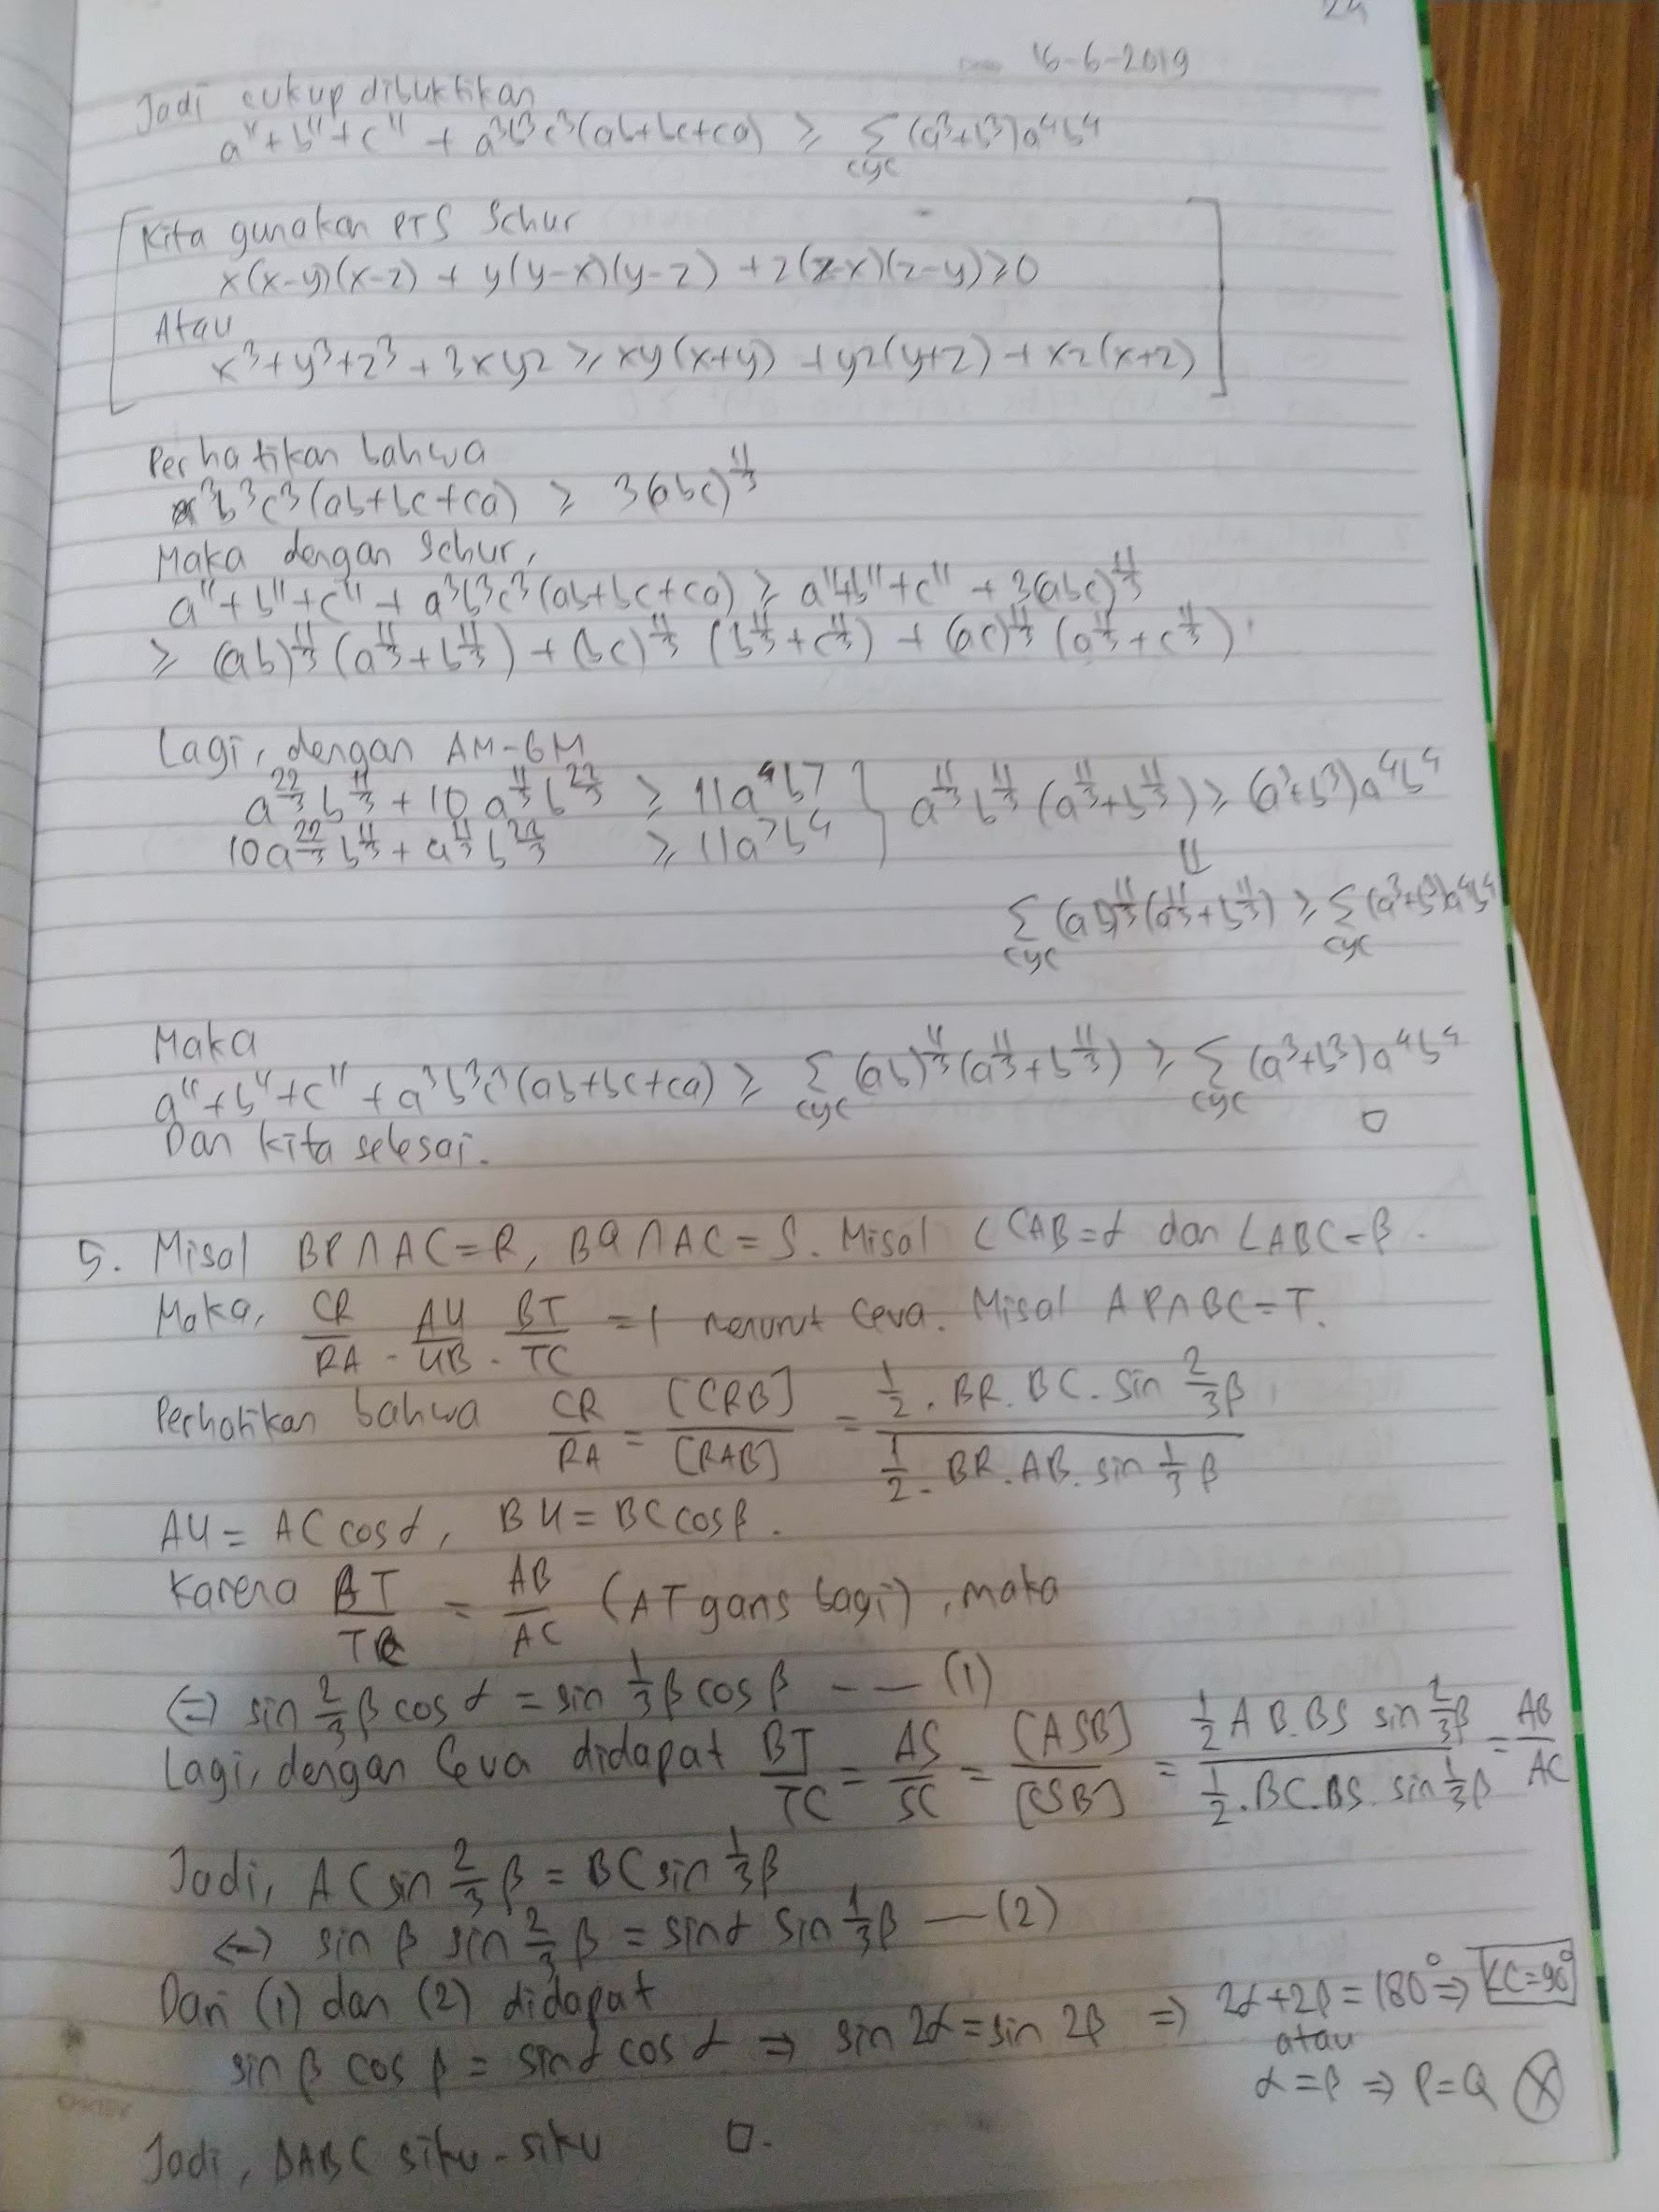 24
16-6-2019
Jadi cukup dibuktikan
a¹¹+b¹¹+c¹¹ + a³b³c³(ab+bc+ca) ≥ Σ_cyc (a³+b³)a⁴b⁴
Kita gunakan PTS Schur
x(x-y)(x-z) + y(y-x)(y-z) + z(z-x)(z-y) ≥ 0
Atau
x³+y³+z³ + 3xyz ≥ xy(x+y) + yz(y+z) + xz(x+z)
Perhatikan bahwa
a³b³c³(ab+bc+ca) ≥ 3(abc)^(11/3)
Maka dengan Schur,
a¹¹+b¹¹+c¹¹ + a³b³c³(ab+bc+ca) ≥ a¹¹+b¹¹+c¹¹ + 3(abc)^(11/3)
≥ (ab)^(11/3) (a^(11/3)+b^(11/3)) + (bc)^(11/3) (b^(11/3)+c^(11/3)) + (ac)^(11/3) (a^(11/3)+c^(11/3))
Lagi, dengan AM-GM
a^(22/3) b^(11/3) + 10 a^(11/3) b^(22/3) ≥ 11a⁴b⁷ } a^(11/3) b^(11/3) (a^(11/3)+b^(11/3)) ≥ (a³+b³)a⁴b⁴
10a^(22/3) b^(11/3) + a^(11/3) b^(22/3) ≥ 11a⁷b⁴
⇓
Σ_cyc (ab)^(11/3) (a^(11/3)+b^(11/3)) ≥ Σ_cyc (a³+b³)a⁴b⁴
Maka
a¹¹+b¹¹+c¹¹ + a³b³c³(ab+bc+ca) ≥ Σ_cyc (ab)^(11/3) (a^(11/3)+b^(11/3)) ≥ Σ_cyc (a³+b³)a⁴b⁴
Dan kita selesai. □
5. Misal BP∩AC=R, BQ∩AC=S. Misal ∠CAB=α dan ∠ABC=β.
Maka, CR/RA · AU/UB · BT/TC = 1 menurut Ceva. Misal AP∩BC=T.
Perhatikan bahwa CR/RA = [CRB]/[RAB] = (1/2 · BR · BC · sin 2/3 β)/(1/2 · BR · AB · sin 1/3 β)
AU = AC cos α, BU = BC cos β.
Karena BT/TC = AB/AC (AT garis bagi), maka
⇔ sin 2/3 β cos α = sin 1/3 β cos β --- (1)
Lagi, dengan Ceva didapat BT/TC = AS/SC = [ASB]/[CSB] = (1/2 AB.BS sin 2/3 β)/(1/2 · BC.BS. sin 1/3 β) = AB/AC
Jadi, AC sin 2/3 β = BC sin 1/3 β
⇔ sin β sin 2/3 β = sin α sin 1/3 β — (2)
Dari (1) dan (2) didapat
sin β cos β = sin α cos α ⇒ sin 2α = sin 2β ⇒ 2α+2β = 180° ⇒ ∠C=90°
atau
α=β ⇒ P=Q ⊗
Jadi, ΔABC siku-siku □.